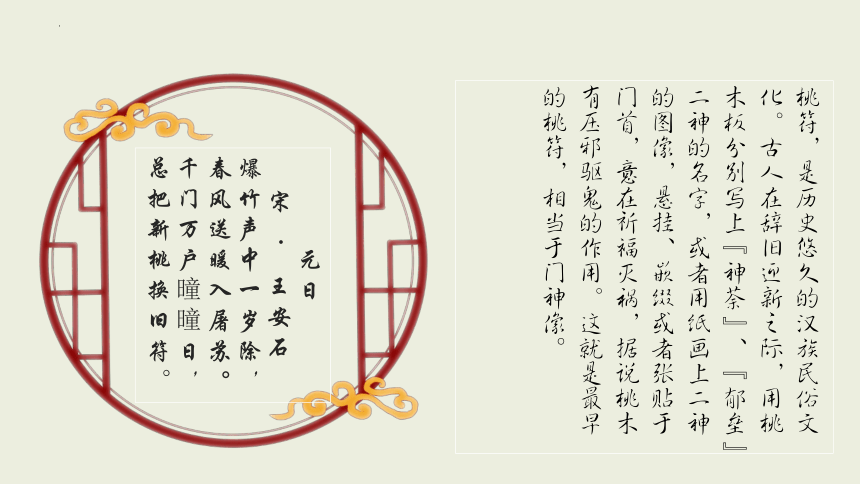 元日
宋·王安石
爆竹声中一岁除，
春风送暖入屠苏。
千门万户曈曈日，
总把新桃换旧符。
桃符，是历史悠久的汉族民俗文
化。古人在辞旧迎新之际，用桃
木板分别写上『神荼』、『郁垒』
二神的名字，或者用纸画上二神
的图像，悬挂、嵌缀或者张贴于
门首，意在祈福灭祸，据说桃木
有压邪驱鬼的作用。这就是最早
的桃符，相当于门神像。